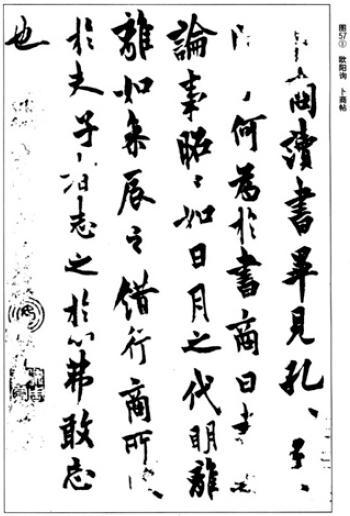 图57 欧阳询 卜商帖
商讀書畢見孔〻子〻
何為於書商曰書之
論事昭〻如日月之代明離
離如參辰之錯行商所
於夫子者志之於心弗敢忘
也